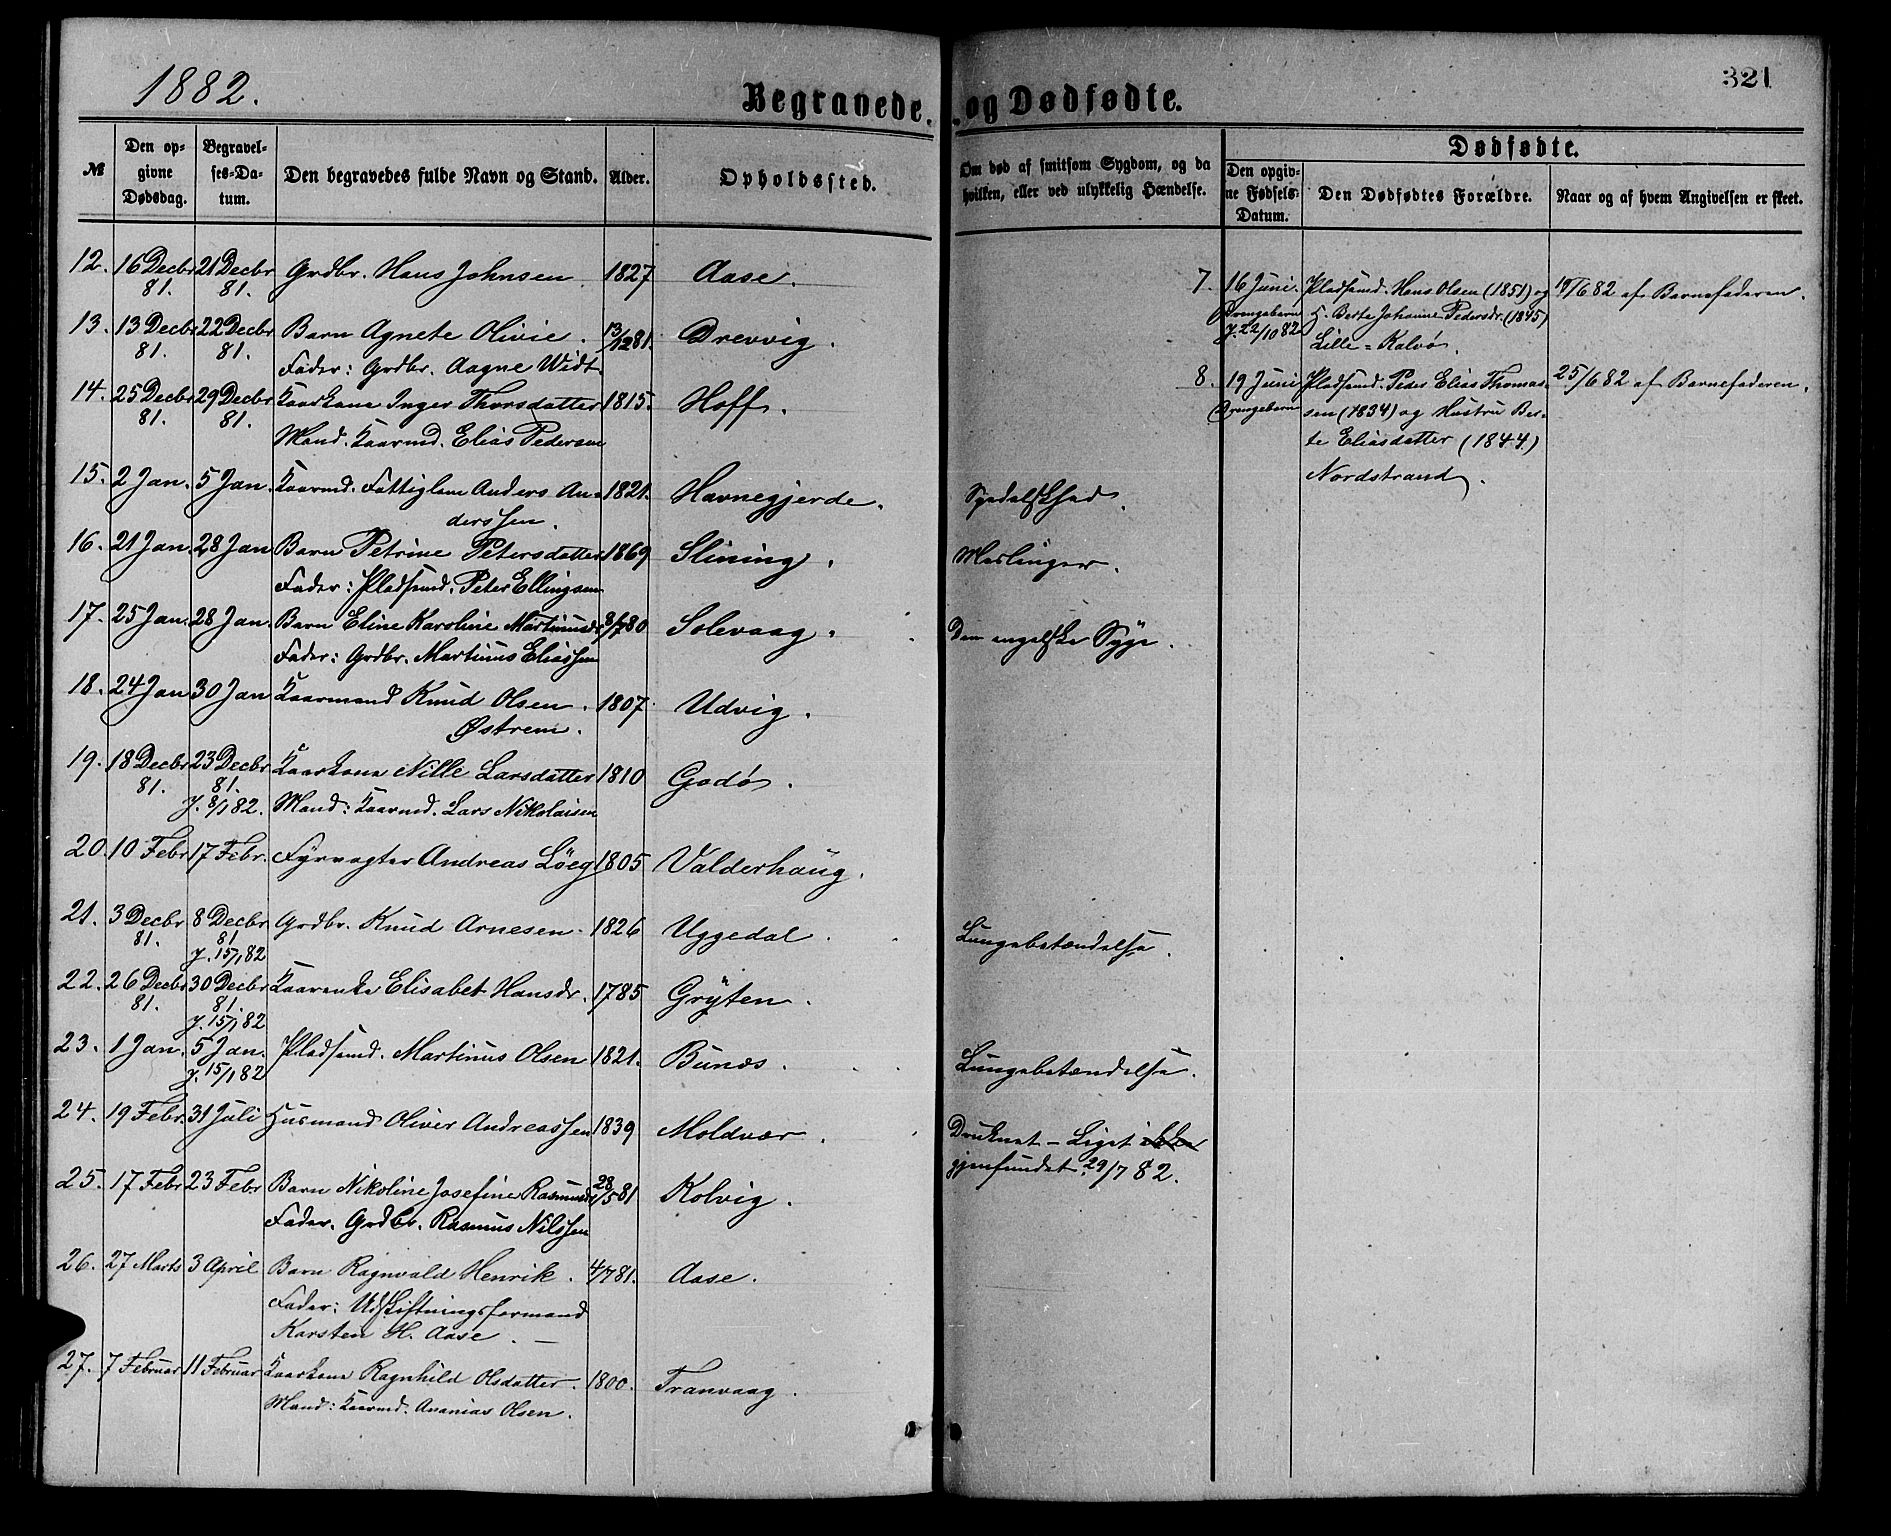 1882.
Begravede.
№
Den op-
givne
Dødsdag.
Begravel-
ses-Da-
tum.
Den begravedes fulde Navn og Stand.
Alder.
Opholdssted.
12. 16 Decbr 21 Decbr Grdbr. Hans Johnsen. 1827 Aase.
81. 81.
13. 13 Decbr 22 Decbr Barn Agnete Olivie. 13/12 81. Drevvig.
81. 81.
Fader: Grdbr. Aagne Widt
14. 25 Decbr 29 Decbr Kaarkone Inger Thorsdatter 1815. Hoff.
81. 81.
Mand. Kaarmd. Elias Pedersen
15. 2 Jan. 5 Jan. Kaarmd. Fattiglem Anders An- 1821. Havnegjerde.
derssen.
16. 21 Jan. 28 Jan Barn Petrine Petersdatter 1869 Slining.
Fader: Pladsmd. Peter Ellingsen
17. 25 Jan. 28 Jan. Barn Eline Karoline Martinusdr 8/7 80 Solevaag.
Fader: Grdbr. Martinus Eliassen
18. 24 Jan 30 Jan Kaarmand Knud Olsen. 1807. Udvig.
Østrem.
19. 18 Decbr 23 Decbr Kaarkone Nille Larsdatter 1810 Godø.
81. 81.
J. 8/1 82. Mand: Kaarmd. Lars Nikolaisen
20. 10 Febr 17 Febr. Fyrvogter Andreas Löeg 1805 Valderhaug.
21. 3 Decbr 8 Decbr Grdbr. Knud Arnesen. 1826 Uggedal.
81. 81
J. 15/1 82
22. 26 Decbr 30 Decbr Kaarenke Elisabet Hansdr. 1785 Gryten.
81. 81.
J. 15/1 82
23. 1 Jan. 5 Jan. Pladsmd. Martinus Olsen 1821. Bunæs.
J. 15/1 82
24. 19 Febr. 31 Juli Husmand Oliver Andreassen 1839 Moldvær.
25. 17 Febr 23 Febr Barn Nikoline Josefine Rasmusdr 28/5 81 Kolvig.
Fader. Grdbr. Rasmus Nilssen
26. 27 Marts 3 April Barn Ragnvald Henrik. 4/7 81. Aase.
Fader: Udskiftningsformand
Karsten H. Aase. —
27. 7 Februar 11 Februar Kaarkone Ragnhild Olsdatter. 1800. Tranvaag.
Mand: Kaarmd. Ananias Olsen.
321
og Dødfødte.
Om død af smitsom Sygdom, og da
hvilken, eller ved ulykkelig Hændelse.
Dødfødte.
Den opgiv-
ne Fødsels-
Datum.
Den Dødfødtes Forældre.
Naar og af hvem Angivelsen er skeet.
7. 16 Juni. Pladsmd. Hans Olsen (1851) og 18/6 82 af Barnefaderen.
Drengebarn H. Berte Johanne Pedersdr. (1845)
J. 22/10 82 Lille-Kalvø.
8. 19 Juni Pladsmd. Peder Elias Thomas- 25/6 82 af Barnefaderen.
Drengebarn sen (1834) og Hustru Ber-
te Eliasdatter (1844.)
Nordstrand.
Spedalskhed.
Meslinger.
Den engelske Syge.
Lungebetændelse.
Lungebetændelse.
Druknet – Liget ikke
gjenfundet 29/7 82.